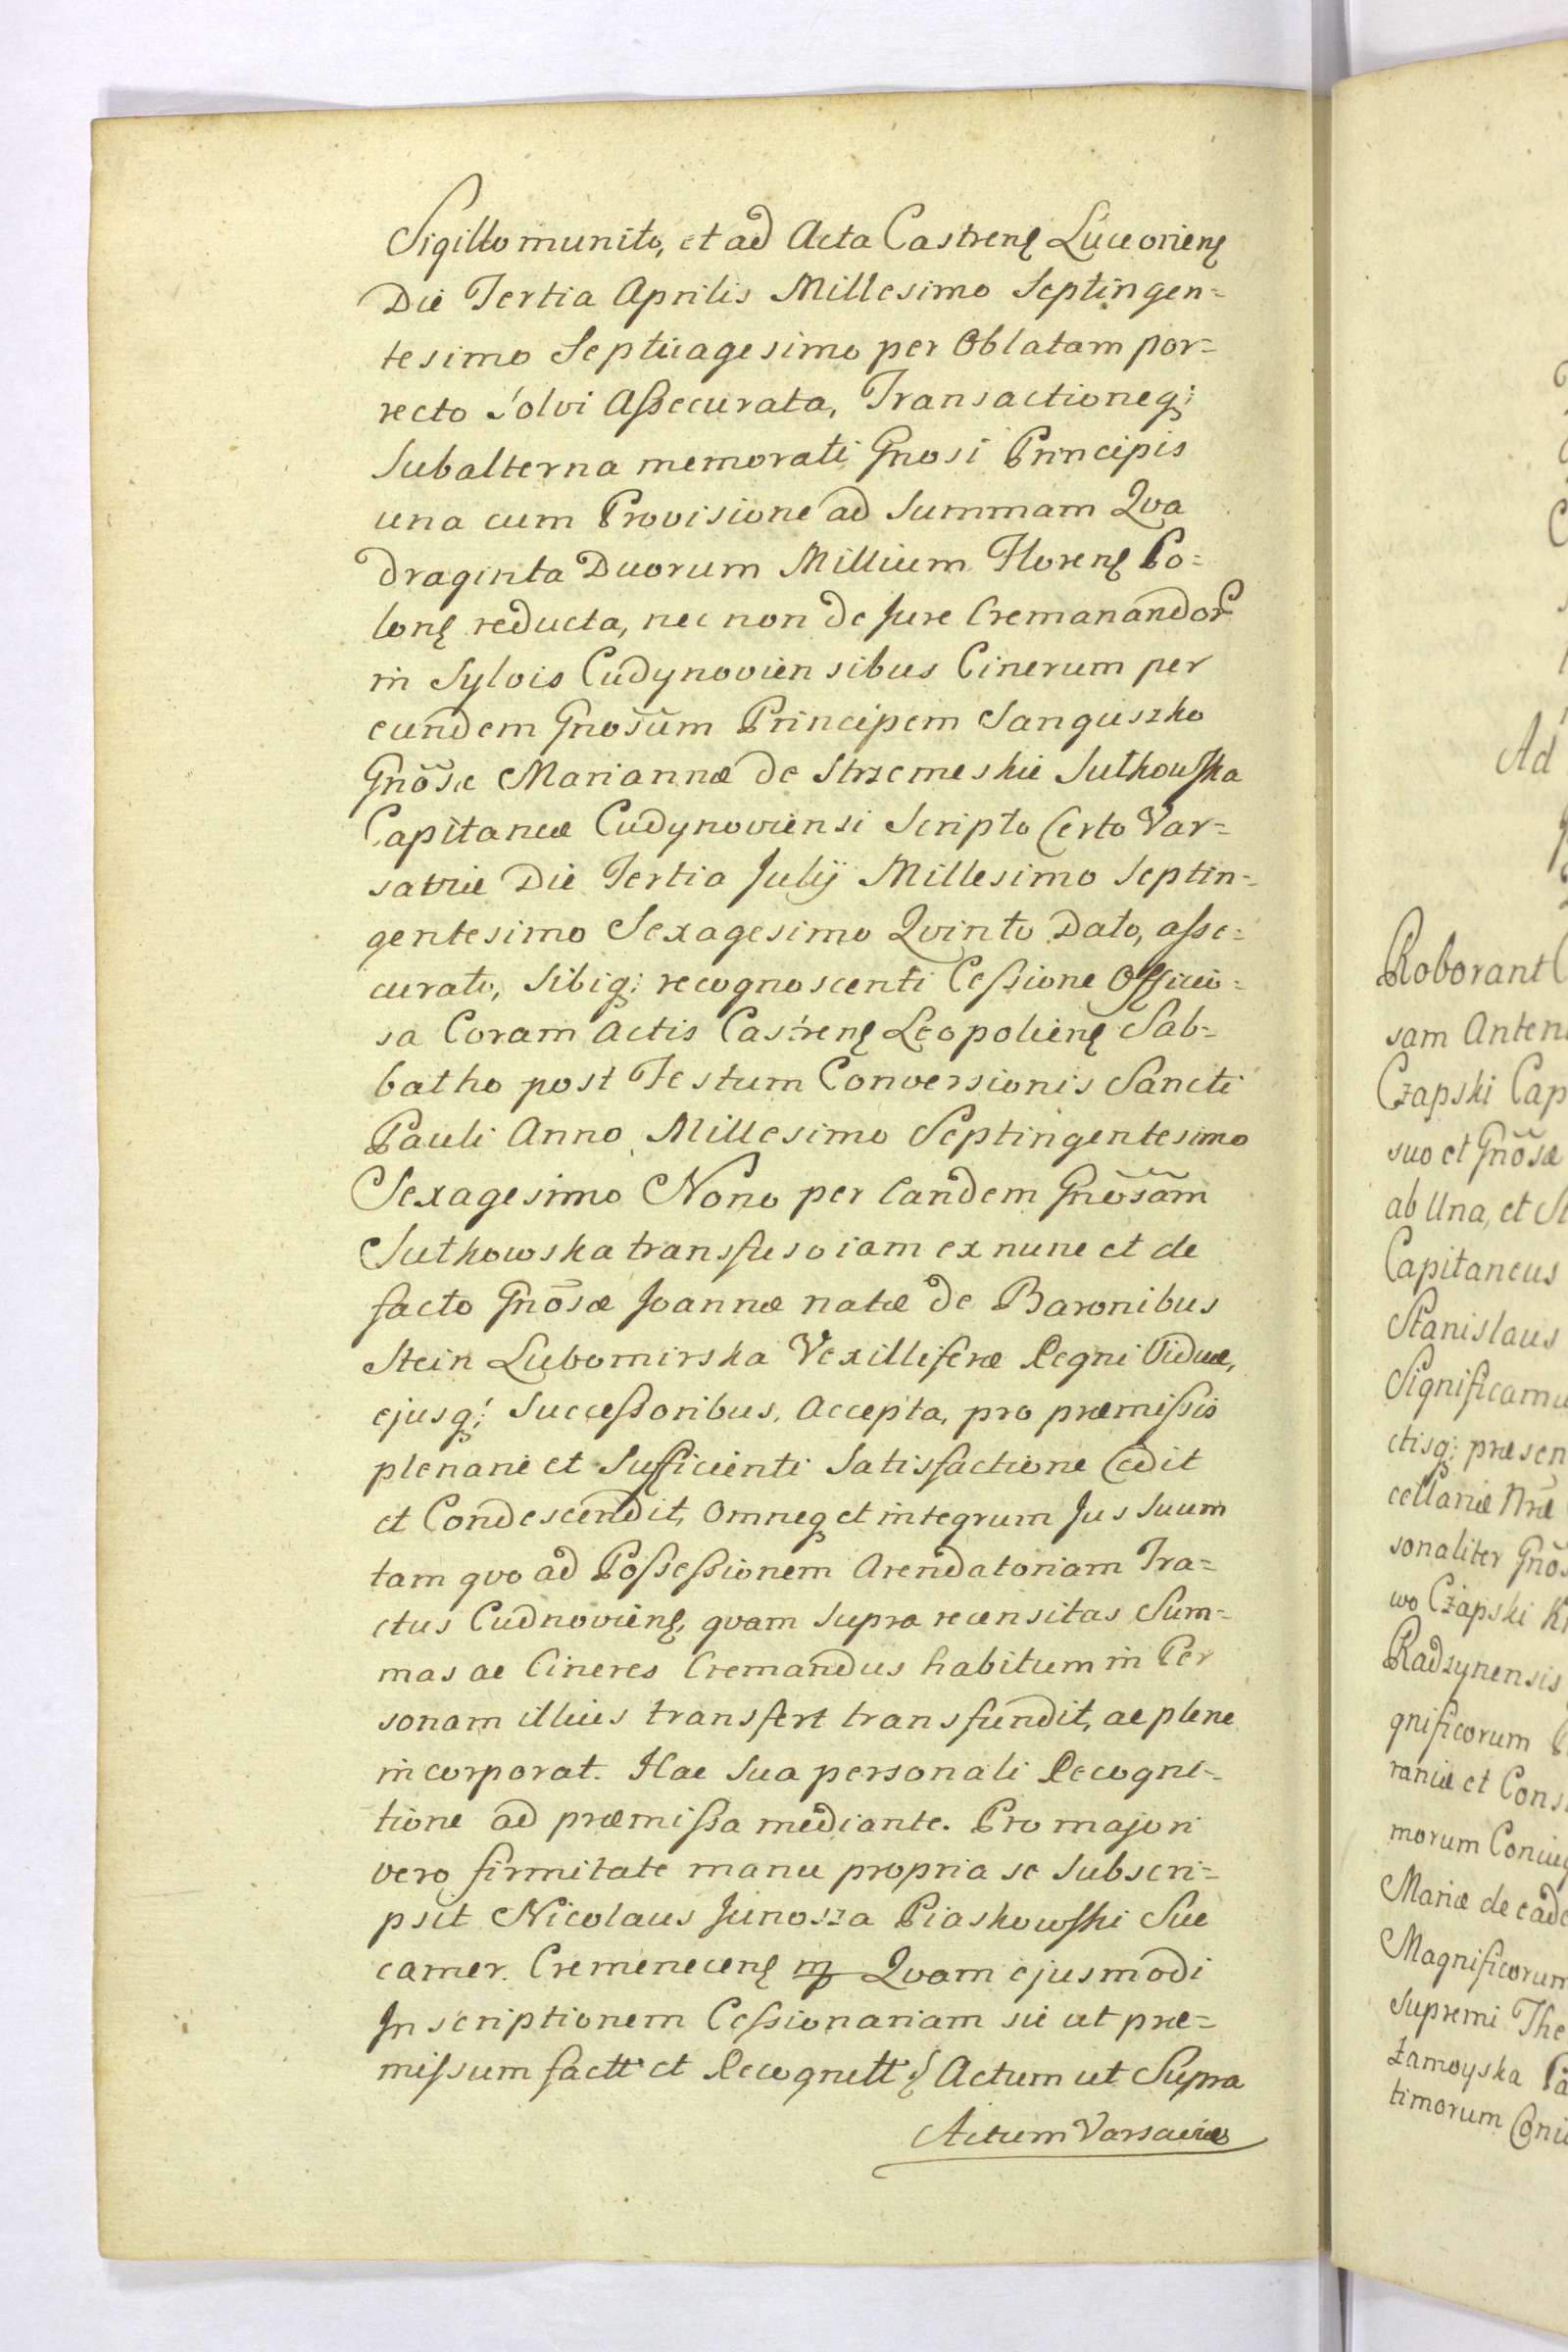 Sigillo munito, et ad Acta Castrenę Luceorienę
Die Tertia Aprilis Millesimo Septingen=
tesimo Septuagesimo per Oblatam por=
recto Solvi Assecurata, Transactioneq;
Subalterna memorati Gnosi Principis
una cum Provisione ad Summam Qva
draginta Duorum Millium Florenę Po=
lonę reducta, nec non de Jure Cremanandor
in Sylvis Cudynoviensibus Cinerum per
eundem Gnosum Principem Sanguszko
Gnosæ Mariannæ de Strzemeskie Sutkowska
Capitaneæ Cudynoviensi Scripto Certo Var=
saviæ Die Tertia Julij Millesimo Septin=
gentesimo Sexagesimo Qvinto Dato, asse=
curato, Sibiq; recognoscenti Cessione Officio=
sa Coram Actis Castrenę Leopolienę Sab=
batho post Festum Conversionis Sancti
Pauli Anno Millesimo Septingentesimo
Sexagesimo Nono per Eandem Gnosam
Sutkowska transfuso iam ex nunc et de
facto Gnosæ Joannæ natæ de Baronibus
Stein Lubomirska Vexilliferæ Regni Viduæ,
ejusq; Successoribus, Accepta, pro præmissis
plenarie et Sufficienti Satisfactione Cedit
et Condescendit, Omneq et integrum Jus Suum
tam qvo ad Possessionem Arendatoriam Tra=
ctus Cudnovienę, qvam Supra recensitas Sum=
mas ac Cineres Cremandus habitum in Per
sonam illius transfert transfundit, ac plene
incorporat. Hac Sua personali Recogni=
tione ad præmissa mediante. Pro majori
vero firmitate manu propria se Subscri=
psit Nicolaus Junosza Piaskowski Suc
camer. Cremenecenę mp Qvam ejusmodi
Inscriptionem Cessionariam sic ut præ=
missum factt et Recognitt Actum ut Supra
Actum Varsaviæ
Ad
Roborant
sam Anten
Czapski Cap
suo et Gnosæ
ab Una, et
Capitaneus
Stanislaus
Significamu
ctisq; præsen
cellariæ Nræ
sonaliter Gnos
wo Czapski
Radzynensis
gnificorum
raniæ et Cons
morum Coniug
Mariæ de eade
Magnificorum
Supremi The
Zamoyska
timorum Coni